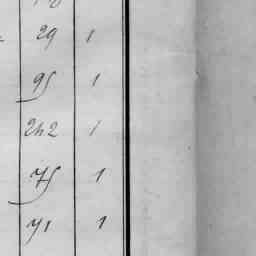 29 1
95 1
242 1
75 1
71 1